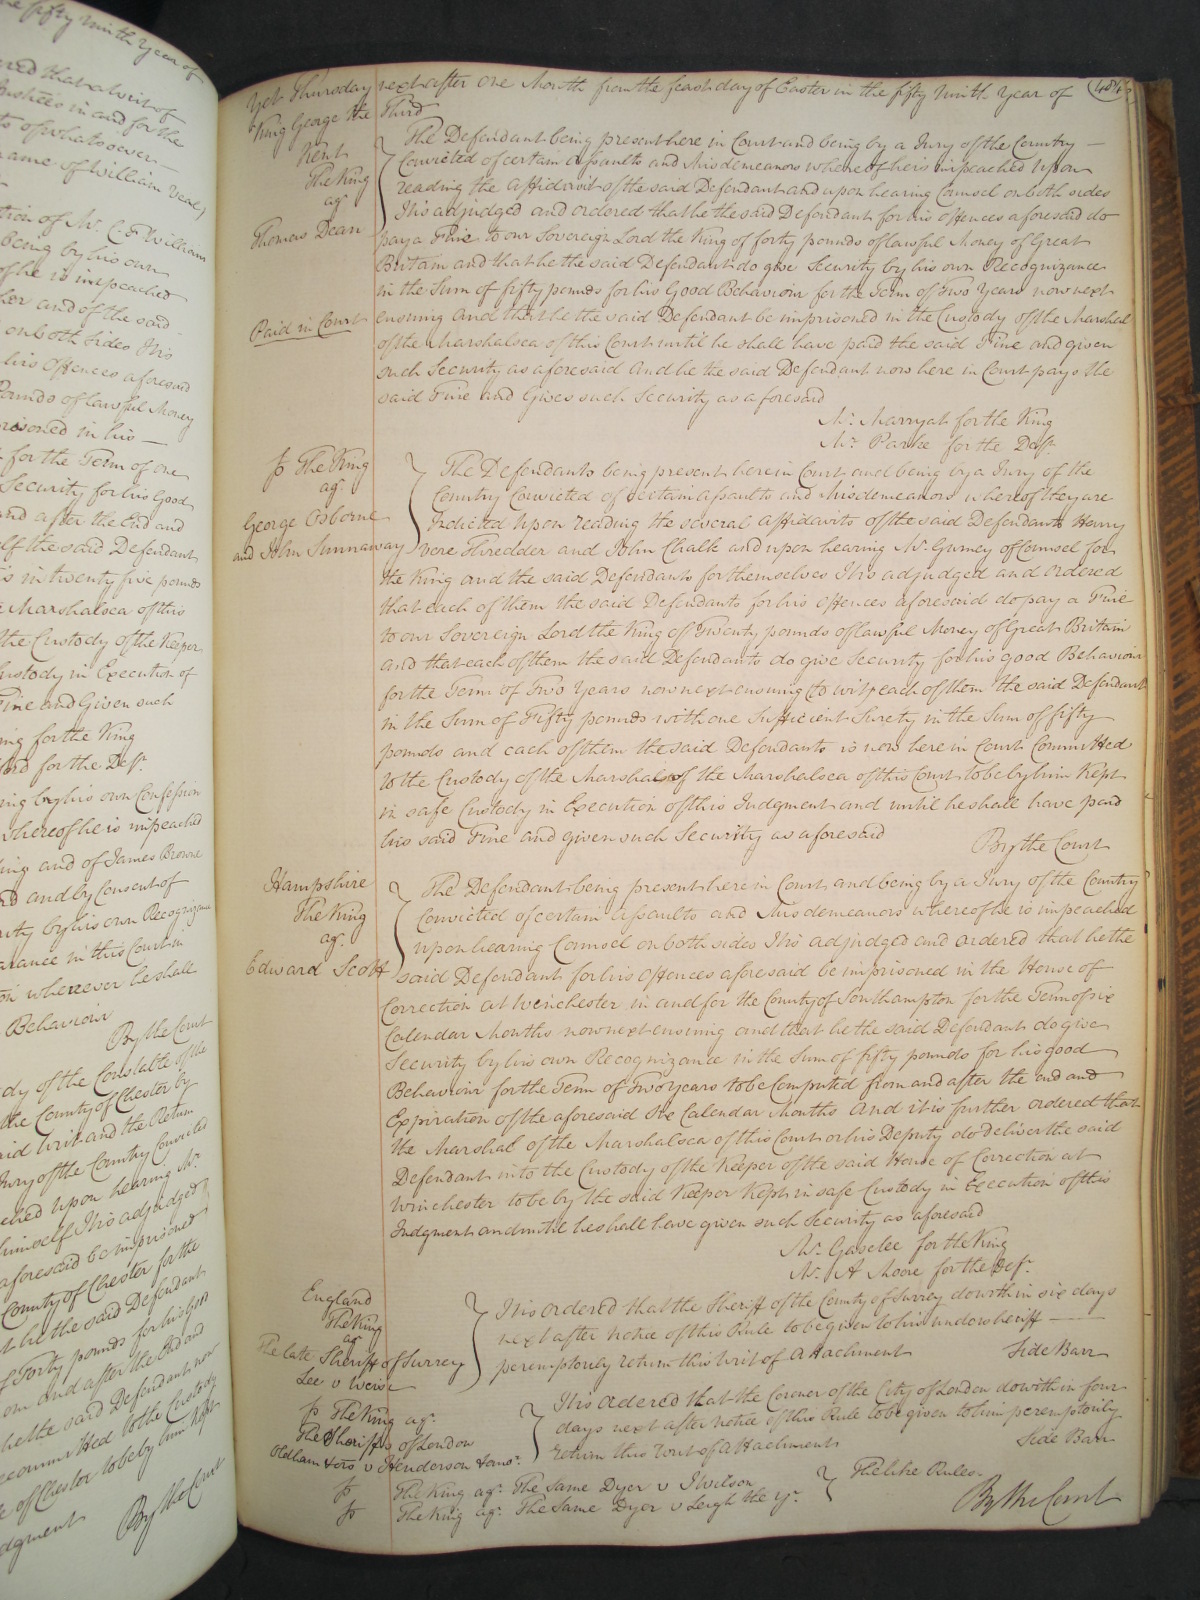 Yet Thursday next after one Month from the feast day of Easter in the fifty ninth Year of
King George the Third
Kent
The King
agt.
Thomas Dean
The Defendant being present here in Court and being by a Jury of the Country
Convicted of certain Assaults and Misdemeanors whereof he is impeached Upon
reading the Affidavit of the said Defendant and upon hearing Counsel on both sides
It is adjudged and ordered that he the said Defendant for his Offences aforesaid do
pay a Fine to our Sovereign Lord the King of forty pounds of lawful Money of Great
Britain and that he the said Defendant do give Security by his own Recognizance
in the Sum of fifty pounds for his Good Behaviour for the Term of Two Years now next
Paid in Court
ensuing And that he the said Defendant be imprisoned in the Custody of the Marshal
of the Marshalsea of this Court until he shall have paid the said Fine and given
such Security as aforesaid And he the said Defendant now here in Court pays the
said Fine and Gives such Security as aforesaid
Mr. Marryat for the King
Mr. Parke for the Deft.
The King
agt.
George Osborne
and John Sunnaway
The Defendants being present here in Court and being by a Jury of the
Country Convicted of certain Assaults and Misdemeanors whereof they are
Indicted Upon reading the several Affidavits of the said Defendants Henry
vere Thredder and John Chalk and upon hearing Mr. Gurney of Counsel for
the King and the said Defendants for themselves It is adjudged and ordered
that each of them the said Defendants for his Offences aforesaid do pay a Fine
to our Sovereign Lord the King of Twenty pounds of lawful Money of Great Britain
and that each of them the said Defendants do give Security for his good Behaviour
for the Term of Two Years now next ensuing (to wit) each of them the said Defendants
in the Sum of Fifty pounds with one Sufficient Surety in the Sum of fifty
pounds and each of them the said Defendants is now here in Court Committed
to the Custody of the Marshal of the Marshalsea of this Court to be by him Kept
in safe Custody in Execution of this Judgment and until he shall have paid
his said Fine and given such Security as aforesaid
By the Court
Hampshire
The King
agt.
Edward Scott
The Defendant being present here in Court and being by a Jury of the Country
Convicted of certain Assaults and Misdemeanors whereof he is impeached
upon hearing Counsel on both sides It is adjudged and ordered that he the
said Defendant for his Offences aforesaid be imprisoned in the House of
Correction at Winchester in and for the County of Southampton for the Term of six
Calendar Months now next ensuing and that he the said Defendant do give
Security by his own Recognizance in the Sum of fifty pounds for his good
Behaviour for the Term of Two years to be Computed from and after the end and
Expiration of the aforesaid Six Calendar Months And it is further ordered that
the Marshal of the Marshalsea of this Court or his Deputy do deliver the said
Defendant into the Custody of the Keeper of the said House of Correction at
Winchester to be by the said Keeper Kept in safe Custody in Execution of this
Judgment and until he shall have given such Security as aforesaid
Mr. Gaselee for the King
Mr. A Moore for the Deft.
England
The King
agt.
The late Sheriff of Surrey
Lee v Weise
It is ordered that the Sheriff of the County of Surrey do within six days
next after notice of this Rule to be given to his undersheriff
peremptorily return this Writ of Attachment
Side Barr
The King agt.
The Sheriffs of London
Oldham & ors v Henderson & anor.
It is ordered that the Coroner of the City of London do within four
days next after notice of this Rule to be given to him peremptorily
return this Writ of Attachment
Side Barr
The King agt. The Same Dyer v J Wilson
The King agt. The Same Dyer v Leigh the yr.
The like Rules.
By the Court
the fifty Ninth Year of
ered that a Writ of
in and for the
of whatsoever
name of William Veal
tion of Mr. C. F. William
being by his own
of he is impeached
and of the said
on both Sides It is
his Offences aforesaid
Pounds of lawful Money
prisoned in his
for the Term of one
Security for his Good
and after the End and
the said Defendant
in twenty five pounds
Marshalsea of this
the Custody of the Keeper
Custody in Execution of
Fine and Given such
ing for the King
for the Deft.
ing by his own Confession
whereof he is impeached
ing and of James Browne
and by Consent of
by his own Recognizance
arance in this Court in
on wherever he shall
Behaviour
By the Court
dy of the Constable of the
the County of Chester by
aid Writ and the Return
Jury of the Country Convicted
ched upon hearing Mr.
himself It is adjudged
aforesaid be imprisoned
County of Chester for the
t he the said Defendant
Forty pounds for his Good
om and after the End and
he the said Defendant now
committed to the Custody
of Chester to be by him Kept
dgment
By the Court